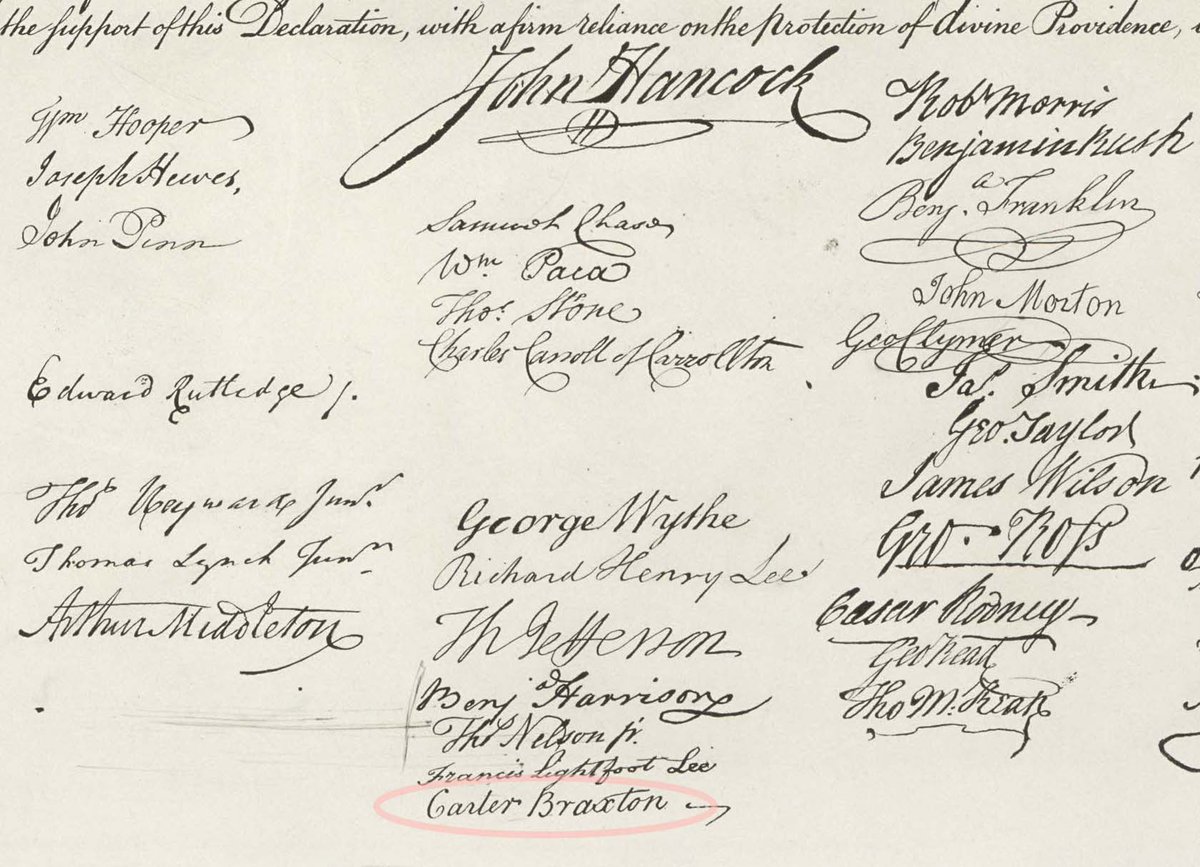 the support of this Declaration, with a firm reliance on the protection of divine Providence,
Wm Hooper
Joseph Hewes,
John Penn
Edward Rutledge /.
Thos Heyward Junr.
Thomas Lynch Junr.
Arthur Middleton
John Hancock
Samuel Chase
Wm. Paca
Thos. Stone
Charles Carroll of Carrollton
George Wythe
Richard Henry Lee
Th Jefferson
Benja Harrison
Thos Nelson jr.
Francis Lightfoot Lee
Carter Braxton
Robt Morris
Benjamin Rush
Benja. Franklin
John Morton
Geo Clymer
Jas. Smith
Geo. Taylor
James Wilson
Geo. Ross
Caesar Rodney
Geo Read
Tho M:Kean